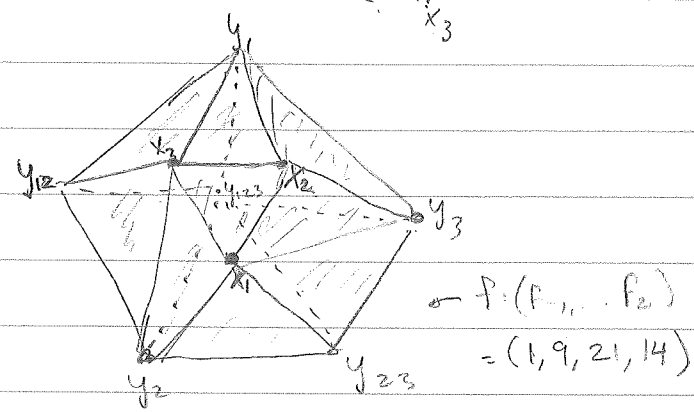 x₃
y₁
x₃
x₂
y₁₂
y₁₂₃
y₃
x₁
f = (f₋₁, ... f₂)
= (1, 9, 21, 14)
y₂
y₂₃